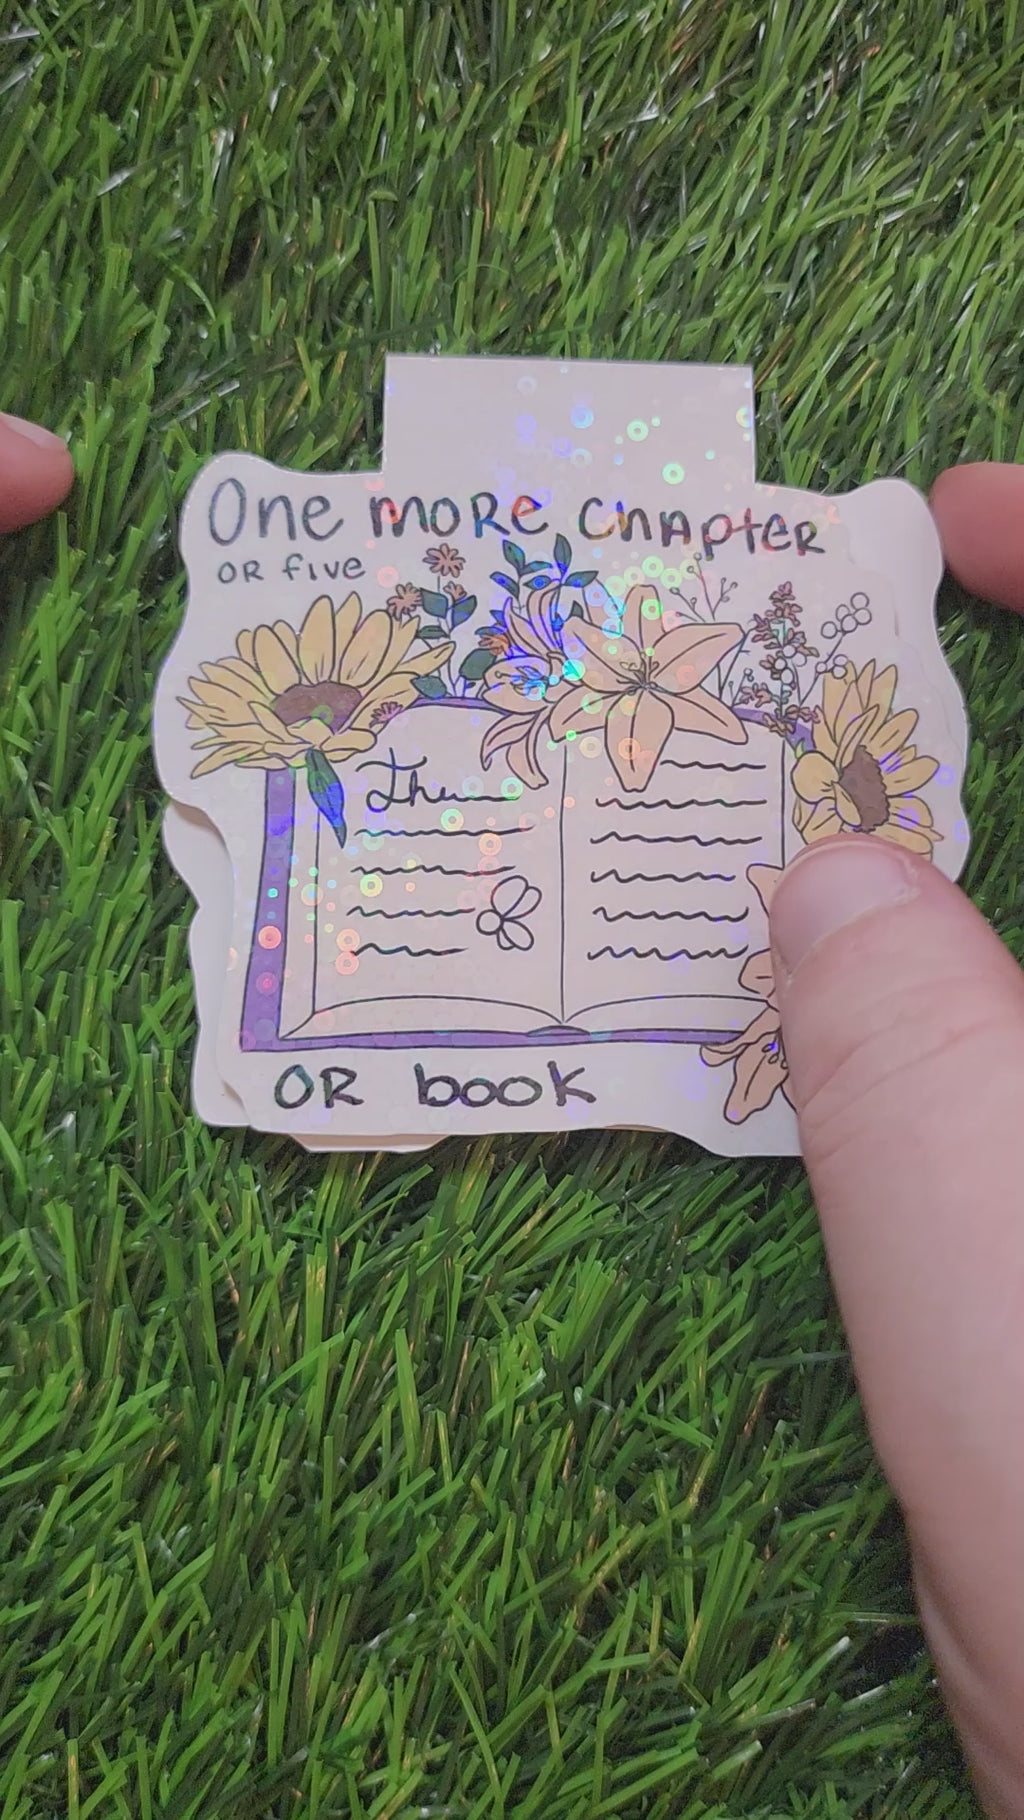 One more chapter
or five
The
or book